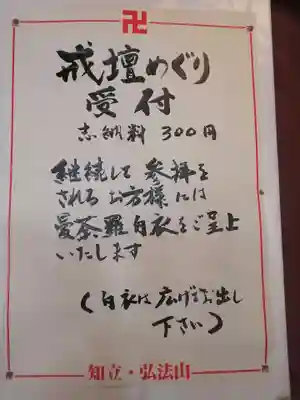 卍
戒壇めぐり
受付
志納料 300円
継続して参拝を
されるお方様には
曼荼羅白衣をご呈上
いたします
(白衣は広げてお出し
下さい)
知立・弘法山